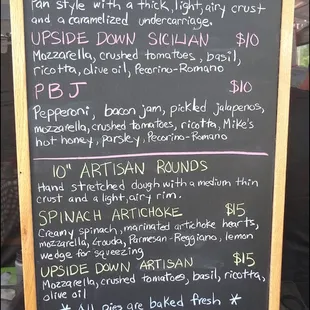 Pan style with a thick, light, airy crust
and a caramelized undercarriage.
UPSIDE DOWN SICILIAN $10
Mozzarella, crushed tomatoes, basil,
ricotta, olive oil, Pecorino-Romano
PBJ $10
Pepperoni, bacon jam, pickled jalapenos,
mozzarella, crushed tomatoes, ricotta, Mike's
hot honey, parsley, Pecorino-Romano
10" ARTISAN ROUNDS
Hand stretched dough with a medium thin
crust and a light, airy rim.
SPINACH ARTICHOKE $15
Creamy spinach, marinated artichoke hearts,
mozzarella, Gouda, Parmesan-Reggiano, lemon
wedge for squeezing
UPSIDE DOWN ARTISAN $15
Mozzarella, crushed tomatoes, basil, ricotta,
olive oil
* All pies are baked fresh *